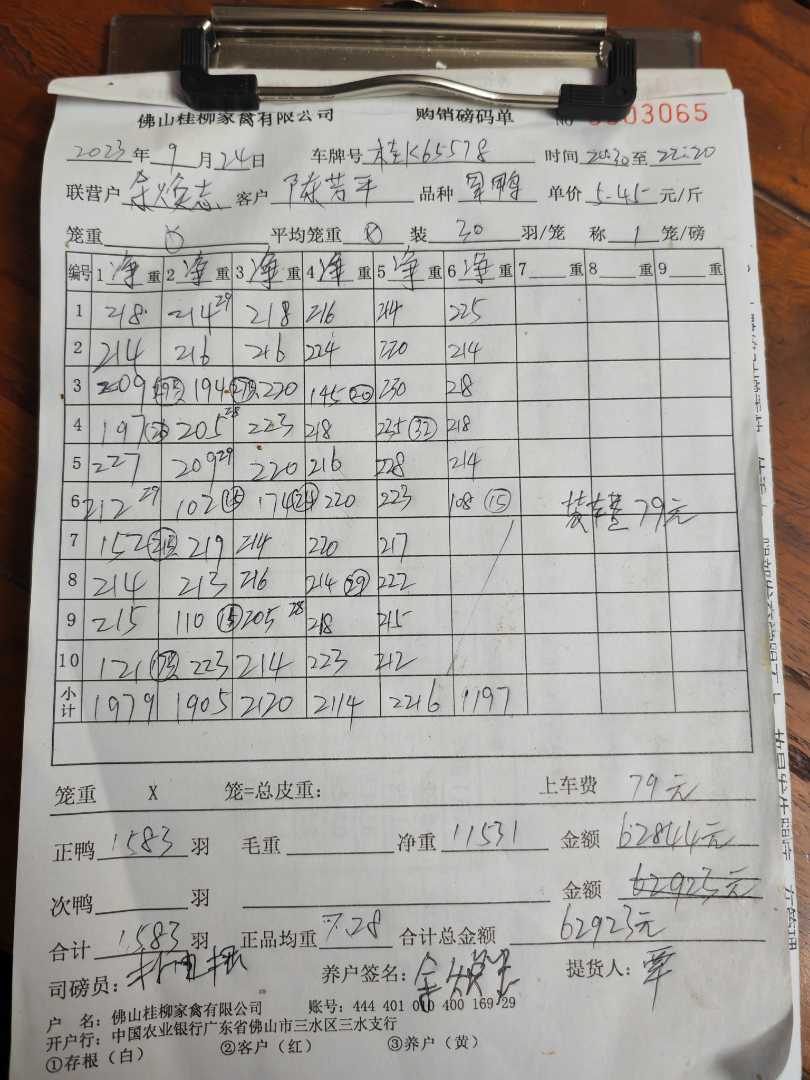 佛山桂柳家禽有限公司 购销磅码单 No 0303065
2023年9月24日 车牌号 桂K65578 时间 20:30至22:20
联营户 余焕志 客户 陈芳平 品种 军鸭 单价 5.45 元/斤
笼重 0 平均笼重 0 装 30 羽/笼 称 1 笼/磅
编号 1 净 重 2 净 重 3 净 重 4 净 重 5 净 重 6 净 重 7 重 8 重 9 重
1 218 214 29 218 216 214 225
2 214 216 216 224 220 214
3 209 194 220 145 (20) 230
4 197 205 28 223 218 225 (32) 218
5 227 209 29 220 216 228 214
6 212 29 102 (15) 174 (24) 220 223 108 (15) 79元
7 152 219 214 220 217
8 214 213 216 214 (29) 222
9 215 110 (15) 205 28 218 215
10 121 223 214 223 212
小计 1979 1905 2120 2114 2216 1197
笼重 X 笼=总皮重: 上车费 79元
正鸭 1583 羽 毛重 净重 11531 金额 62844元
次鸭 羽 金额 62923元
合计 1583 羽 正品均重 7.28 合计总金额 62923元
司磅员: 养户签名: 提货人: 覃
户 名: 佛山桂柳家禽有限公司 账号: 444 401 010 400 169 29
开户行: 中国农业银行广东省佛山市三水区三水支行
①存根(白) ②客户(红) ③养户(黄)